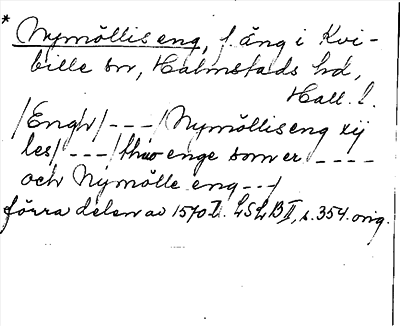 * Nymölliseng, f. äng i Kvi-
bille sn, Halmstads hd,
Hall. l.
/Engh/ --- /Nymölliseng xij
les/, --- /thuo enge som er ----
och Nÿmölle eng --/
förra delen av 1570 t. LSLB II, s. 354. orig.